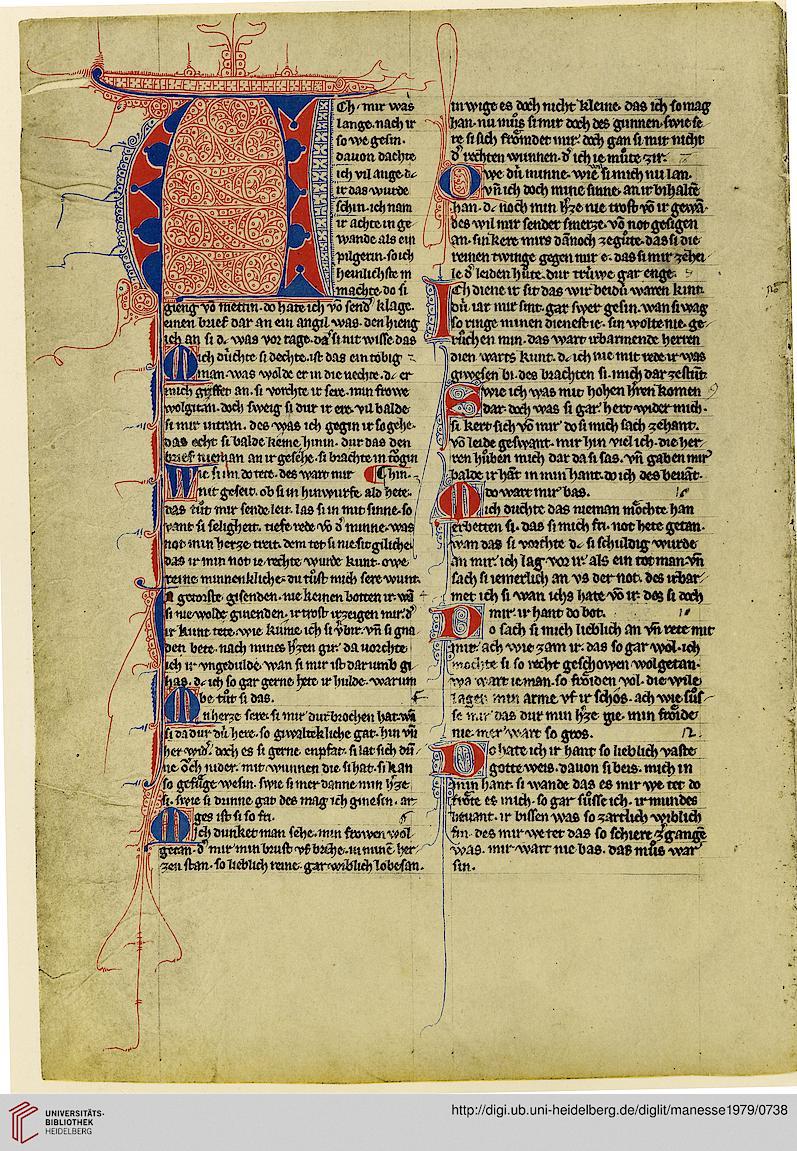 Ch mir was
lange. nach ir
so we gesin.
dauon dachte
ich vil ange. dc
ir das wurde
schin. ich nam
ir achte in ge
wande als ein
pilgerin. so ich
heinlichste in
machte. do si
gieng vō mettin. do hate ich vō send' klage.
einen brief dar an ein angil was. den hieng
ich an si dc was vor tage. dc si nit wisse das
Mich dūchte si dechte. ist das ein tobig
man. was wolde er in die nechte. dc er
mich griffet an. si vorchte ir sere. min frowe
wolgitan. doch sweig si dur ir ere. vil balde
si mir intran. des was ich gegin ir so gehe.
das echt si balde keme hinin. dur das den
brief nieman an ir gesehe. si brachte in tōgin
Wie si im do tete. des wart mir Chin.
nit geseit. ob si in hinwurfe ald hete.
das tůt mir sende leit. las si in mit sinne. so
vant si seligheit. tiefe rede vō d' minne. was
not min herze treit. dem tet si nie sit giliche.
das ir min not ie rechte wurde kunt. owe
reine minnenkliche. du tůst mich sere wunt.
In getorste gisenden. nie keinen botten ir wā
si nie wolde giuenden. ir trost irzeigen mir. d'
ir kunt tete. wie kůme ich si v'bir. vñ si gna
den bete. nach mines h'zen gir. da vorchte
ich ir vngedulde. wan si mir ist dar umb gi
has. dc ich so gar gerne hete ir hulde. warum
be tůt si das.
Min herze sere. si mir dur brochen hat. wā
si da dur dů here. so giwaltekliche gat. hin vñ
her wid'. doch es si gerne enpfat. si lat sich dñ
ne ŏch nider. mit wunnen die si hat. si kan
so gefůge wesin. swie si mer danne min h'ze
si. swie si dunne gat des mag ich ginesin. ar
ges ist si so fri. 6
Mich dunket man sehe. min frowen wol
getan. d' mir min brust vf breche. in minē her
zen stan. so lieblich reine. gar wiblich lobesan.
in wige es doch nicht kleine. das ich so mag
han. nu můs si mir doch des gunnen. swie se
re si sich frŏmdet mir. doch gan si mir nicht
d' rechten wunnen. d' ich ie můte zir.
Owe dů minne. wie wil si mich nu lan.
vñ ich doch mine sinne. an ir bihalten
han. dc noch min h'ze nie trost vō ir gewā.
des wil mir sender smerze. vō not gesigen
an. sin kere mirs dānoch zegůte. das si die
reinen twinge gegen mir e. das si mir zehei
le d' leiden hůte. dur trůwe gar enge. 9
Ich diene ir sit das wir beidů waren kint.
dů iar mir sint. gar swer gesin. wan si wag
so ringe minen dienest ie. sin wolte nie. ge
růchen min. das wart irbarmende herren
dien warts kunt. dc ich nie mit rede ir was
giwesen bi. des brachten si mich dar zestūt.
Swie ich was mit hohen h'ren komen
dar doch was si gar. hert wider mich.
si kert sich vō mir do si mich sach zehant.
vō leide geswant. mir hin viel ich. die her
ren hůben mich dar da si sas. vñ gaben mir
balde ir hāt in min hant. do ich des bevant.
do wart mir bas. 10
Mich duchte das nieman mŏchte han
erbetten si. das si mich fri. not hete getan.
wan das si vorchte dc si schuldig wurde
an mir. ich lag vor ir als ein tot man vñ
sach si iemerlich an vs der not. des irbar
met ich si wan ichs hate vō ir. des si doch
mir. ir hant do bot.
Do sach si mich lieblich an vñ rete mit
mir. ach wie zam ir. das so gar wol. ich
mochte si so recht geschowen wolgetan.
wa wart ieman. so frŏiden vol. die wile
lagen min arme vf ir schos. ach wie sůs
se mir das dur min h'ze gie. min frŏide
nie mer wart so gros. 12
Do hate ich ir hant so lieblich vaste
gotte weis. dauon si beis. mich in
min hant. si wande das es mir we tet do
frŏte es mich. so gar sůsse ich. ir mundes
bevant. ir bissen was so zartlich wiblich
fin. des mir we tet das so schiere z'gangē
was. mir wart nie bas. das můs war
sin.
UNIVERSITÄTS-
BIBLIOTHEK
HEIDELBERG
http://digi.ub.uni-heidelberg.de/diglit/manesse1979/0738